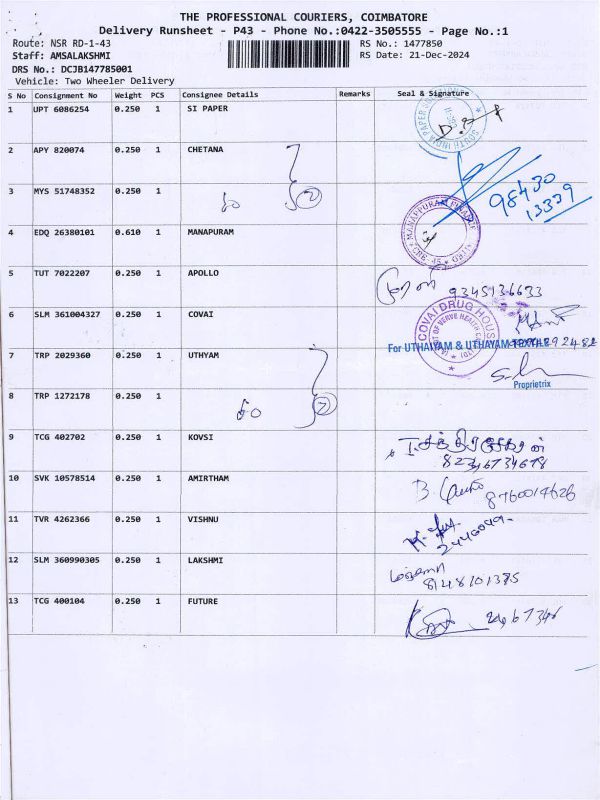 THE PROFESSIONAL COURIERS, COIMBATORE
Delivery Runsheet - P43 - Phone No.:0422-3505555 - Page No.:1
Route: NSR RD-1-43 RS No.: 1477850
Staff: AMSALAKSHMI RS Date: 21-Dec-2024
DRS No.: DCJB147785001
Vehicle: Two Wheeler Delivery
S No Consignment No Weight PCS Consignee Details Remarks Seal & Signature
1 UPT 6086254 0.250 1 SI PAPER
SOUTH INDIA PAPER
2 APY 820074 0.250 1 CHETANA
98430
13339
3 MYS 51748352 0.250 1 ②
4 EDQ 26380101 0.610 1 MANAPURAM
MANAPPURAM FINANCE
5 TUT 7022207 0.250 1 APOLLO
9345136633
6 SLM 361004327 0.250 1 COVAI
COVAI DRUG HOUSE
For UTHAIYAM & UTHAYAM TEXTILE
7 TRP 2029360 0.250 1 UTHYAM
Proprietrix
8 TRP 1272178 0.250 1 ②
9 TCG 402702 0.250 1 KOVSI
82346734678
10 SVK 10578514 0.250 1 AMIRTHAM
8760014626
11 TVR 4262366 0.250 1 VISHNU
12 SLM 360990305 0.250 1 LAKSHMI
8148101385
13 TCG 400104 0.250 1 FUTURE